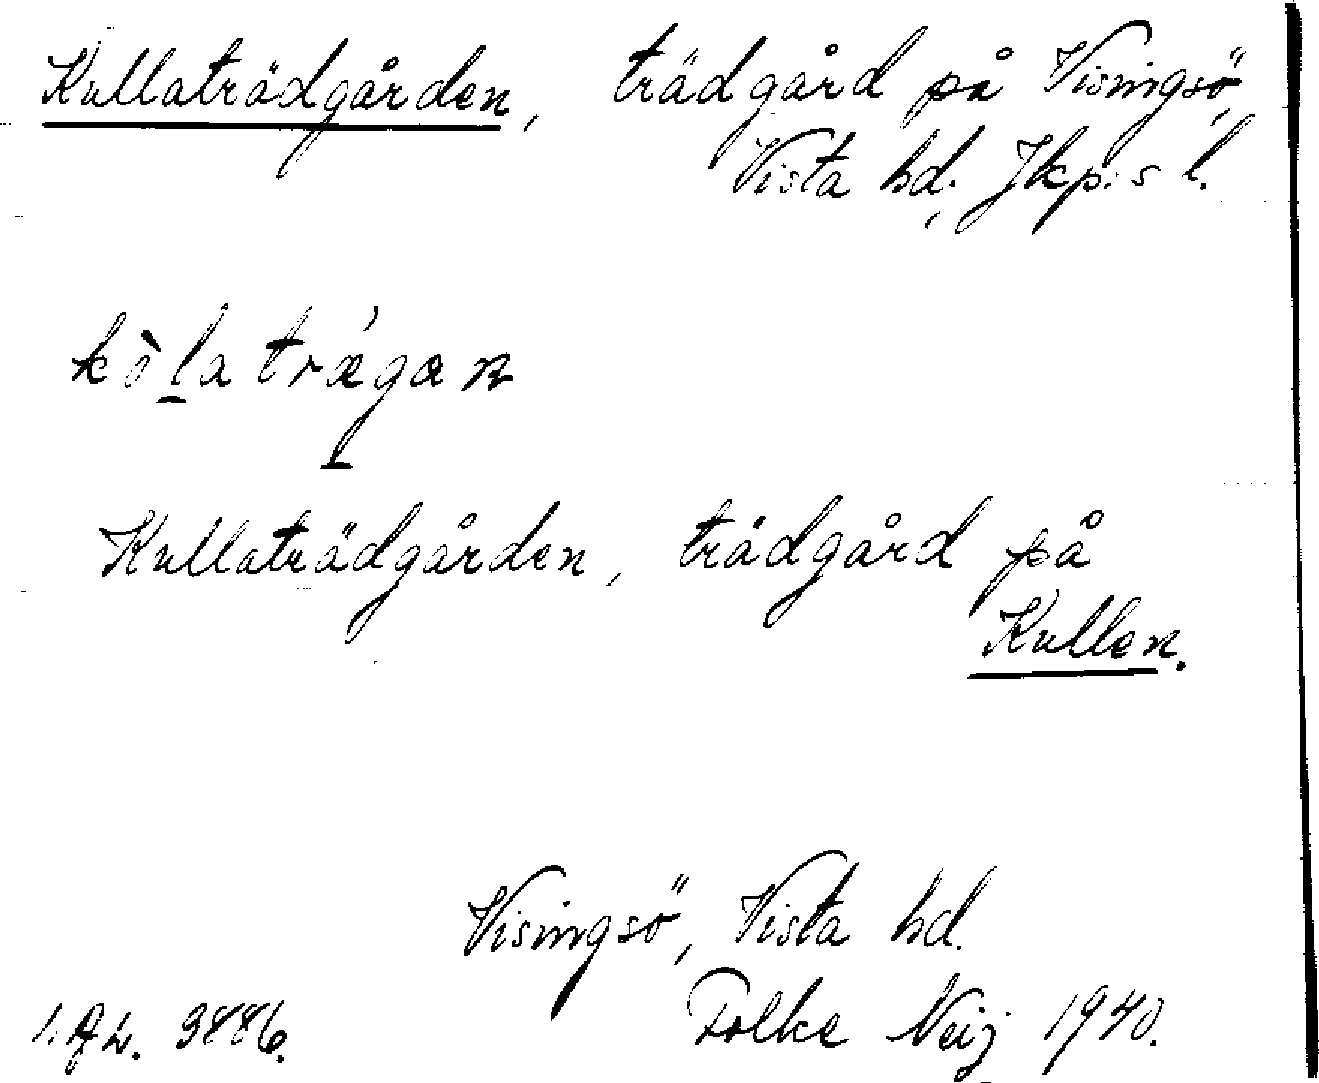 Kullaträdgården, trädgård på Visingsö,
Vista hd. Jkp:s l.
kòlatrǽgan
Kullaträdgården, trädgård på
Kullen.
Visingsö, Vista hd.
Folke Neij 1940.
9886.